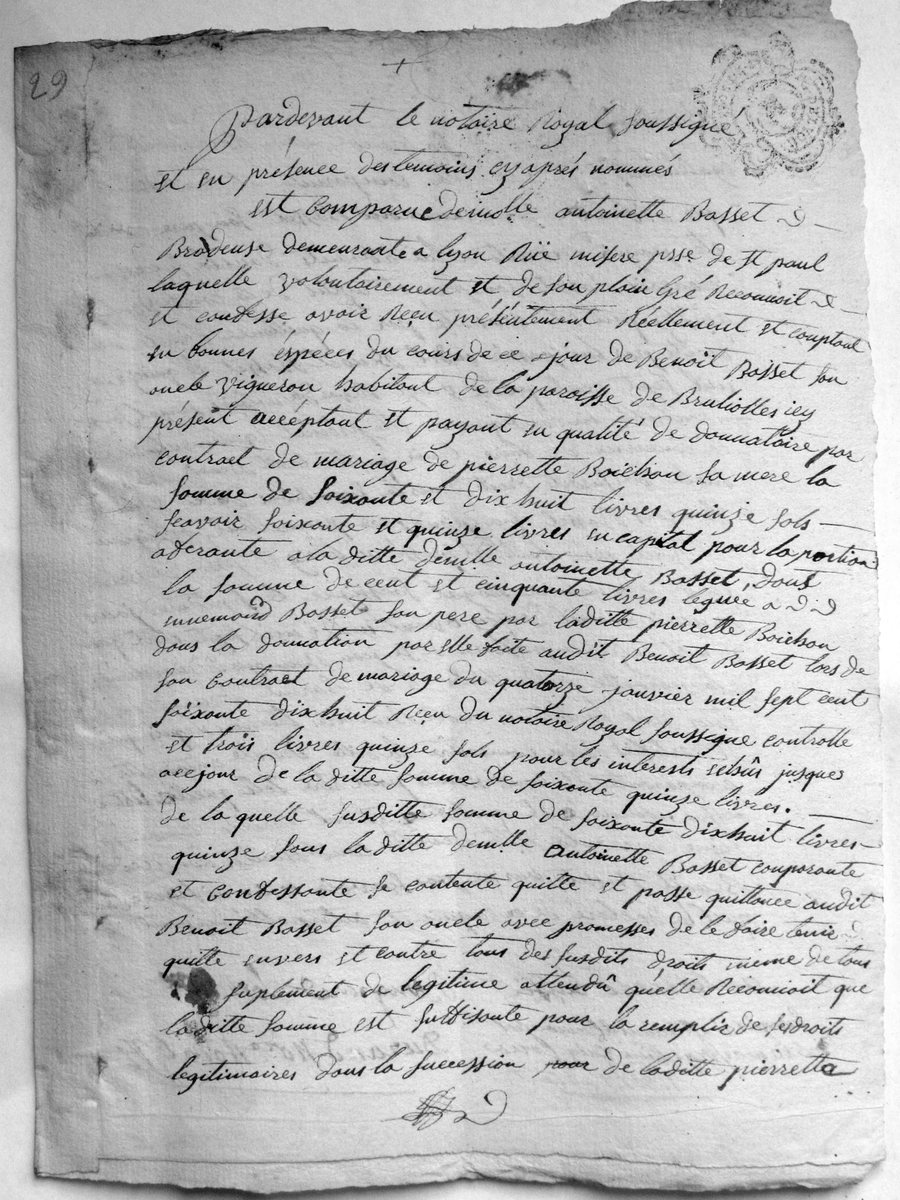 29
+
Pardevant le notaire Royal soussigné
et en présence des temoins cyaprés nommés
est Comparue demolle antoinette Basset
Brodeuse demeurante a lyon Rüe misere psse de st paul
laquelle volontairement et de son plein Gré Reconnoit
et confesse avoir Reçu présentement Réellement et comptant
en bonnes éspéces du cours de ce jour de Benoit Basset son
oncle vigneron habitant de la paroisse de Brullolles icy
présent accéptant et payant en qualité de donnataire par
contract de mariage de pierrette Boichon sa mere la
somme de soixante et dix huit livres quinze sols
scavoir soixante et quinze livres en capital pour la portion
aferante a la ditte demlle antoinette Basset, dans
la somme de cent et cinquante livres leguée a
innemond Basset son pere par laditte pierrette Boichon
dans la donnation par Elle faite audit Benoit Basset lors de
son contract de mariage du quatorze janvier mil sept cent
soixante dixhuit Reçu du notaire Royal soussigné controllé
et trois livres quinze sols pour les interests echûs jusques
acejour de la ditte somme de soixante quinze livres.
de la quelle susditte somme de soixante dixhuit livres
quinze sous la ditte demlle antoinette Basset comparante
et confessante se contente quitte et passe quittance audit
Benoit Basset son oncle avec promesses de le faire tenir
quitte envers et contre tous des susdits droits même de tous
suplement de legitime attendû quelle Reconnoit que
laditte somme est suffisante pour la remplir de ses droits
legitimaires dans la succession pour de laditte pierrette